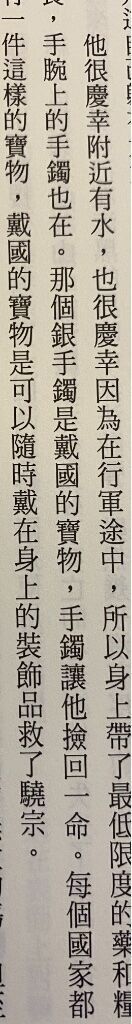 他很慶幸附近有水，也很慶幸因為在行軍途中，所以身上帶了最低限度的藥和糧
，手腕上的手鐲也在。那個銀手鐲是戴國的寶物，手鐲讓他撿回一命。每個國家都
一件這樣的寶物，戴國的寶物是可以隨時戴在身上的裝飾品救了驍宗。